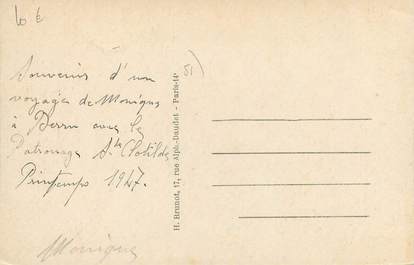 10 €
51)
Souvenir d'un
voyage de Monique
à Berru avec le
Patronage Ste Clotilde
Printemps 1947.
Monique
H. Brunot, 17, rue Alph.-Daudet - Paris-14e